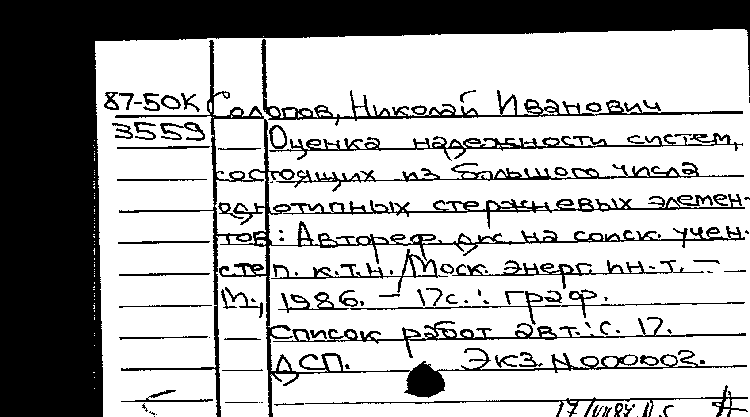 87-50К Солопов, Николай Иванович
3559 Оценка надежности систем,
состоящих из большого числа
однотипных стержневых элемен-
тов: Автореф. дис. на соиск. учен.
степ. к.т.н. / Моск. энерг. ин-т. –
М., 1986. – 17с.: граф.
Список работ авт.: с. 17.
ДСП. Экз. N000002.